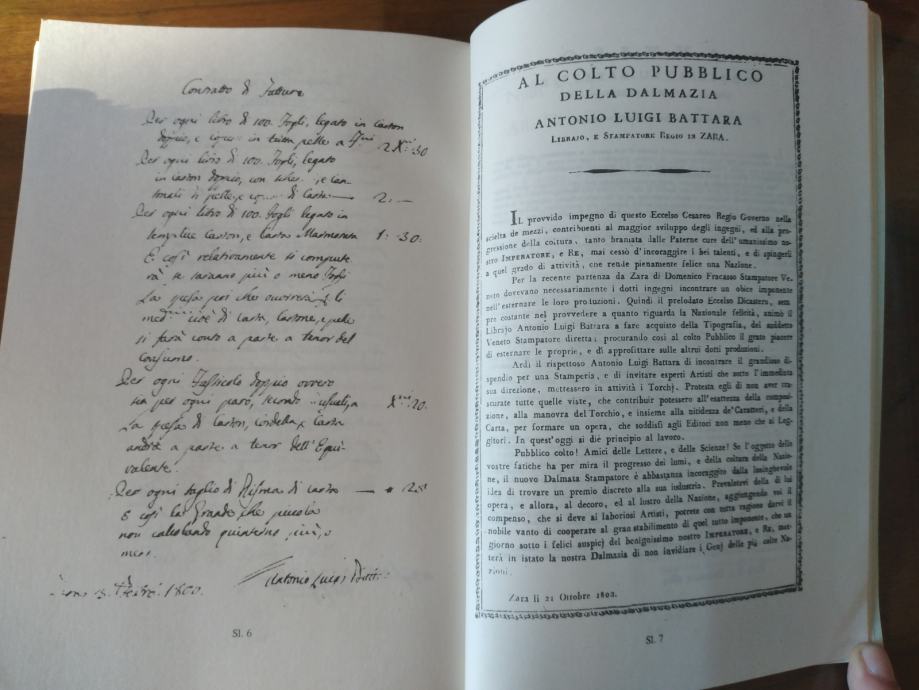 Contratto di Fatture
Per ogni libro di 100. Fogli, legato in carton
doppio, e in tutta pelle a 2 30
Per ogni libro di 100. Fogli, legato
in carton doppio, con , e can-
tonali di pelle, e di Carta — 2. —
Per ogni libro di 100. Fogli legato in
semplice carton, e Carta Marmorata 1: 30:
E così relativamente si compute
rà se saranno più o meno Fogli
La spesa poi che occorrerà
cioè di Carta, Cartone, e pelle
si farà conto a parte a tenor del
consumo.
Per ogni Fassicolo doppio ovvero
sia per ogni paro, secondo 20.
La spesa di Carton, cordella, e Carta
andrà a parte a tenor dell'Equi-
valente.
Per ogni taglio di Risma di carta —
e così la Grande che piccola
non calcolando quinterno più, o
meno.
1800. Antonio Luigi
Sl. 6
AL COLTO PUBBLICO
DELLA DALMAZIA
ANTONIO LUIGI BATTARA
LIBRAJO, E STAMPATORE REGIO IN ZARA.
IL provvido impegno di questo Eccelso Cesareo Regio Governo nella
scielta de mezzi, contribuenti al maggior sviluppo degli ingegni, ed alla pro-
gressione della coltura, tanto bramata dalle Paterne cure dell'umanissimo no-
stro IMPERATORE, e RE, mai cessò d'incoraggire i bei talenti, e di spingerli
a quel grado di attività, che rende pienamente felice una Nazione.
Per la recente partenza da Zara di Domenico Fracasso Stampatore Ve-
neto dovevano necessariamente i dotti ingegni incontrare un obice imponente
nell'esternare le loro protuzioni. Quindi il prelodato Eccelso Dicastero, sem-
pre costante nel provvedere a quanto riguarda la Nazionale felicità, animò il
Librajo Antonio Luigi Battara a fare acquisto della Tipografia, del suddetto
Veneto Stampatore diretta; procurando così al colto Pubblico il grato piacere
di esternare le proprie, e di approfittare sulle altrui dotti produzioni.
Ardì il rispettoso Antonio Luigi Battara di incontrare il grandioso di-
spendio per una Stamperia, e di invitare esperti Artisti che sotto l'immediata
sua direzione, mettessero in attività i Torchj. Protesta egli di non aver tra-
scurate tutte quelle viste, che contribuir potessero all'esattezza della composi-
zione, alla manovra del Torchio, e insieme alla nitidezza de'Caratteri, e della
Carta, per formare un opera, che soddisfi agli Editori non meno che ai Leg-
gitori. In quest'oggi si diè principio al lavoro.
Pubblico colto! Amici delle Lettere, e delle Scienze! Se l'oggetto delle
vostre fatiche ha per mira il progresso dei lumi, e della coltura della Nazio-
ne, il nuovo Dalmata Stampatore è abbastanza incoraggito dalla lusinghevole
idea di trovare un premio discreto alla sua industria. Prevaletevi della di lui
opera, e allora, al decoro, ed al lustro della Nazione, aggiungendo voi il
compenso, che si deve ai laboriosi Artisti, potrete con tutta ragione darvi il
nobile vanto di cooperar al gran stabilimento di quel tutto imponente, che un
giorno sotto i felici auspicj del benignissimo nostro IMPERATORE, e RE, met-
terà in istato la nostra Dalmazia di non invidiare i Genj delle più colte Na-
zioni.
Zara li 21 Ottobre 1802.
Sl. 7